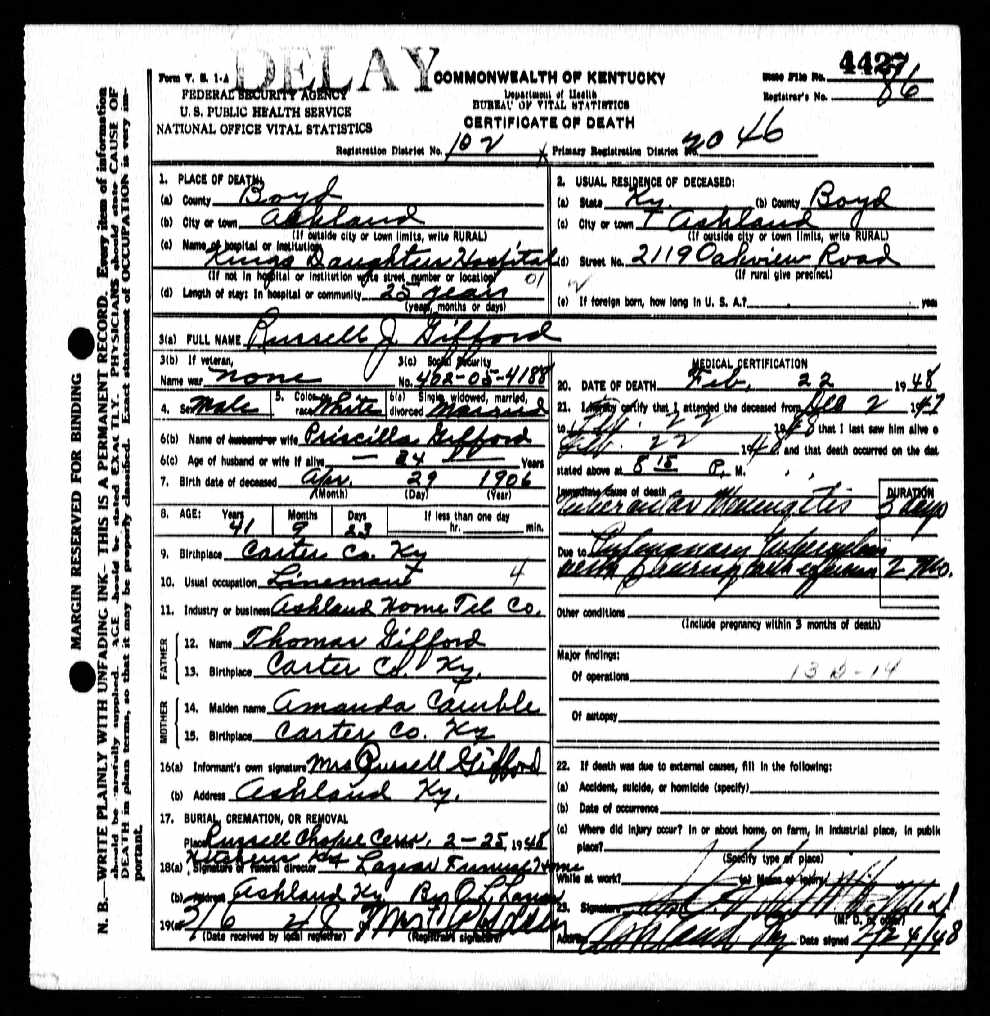 DELAY
4427
Form V. S. 1-A
COMMONWEALTH OF KENTUCKY
State File No.
FEDERAL SECURITY AGENCY
Department of Health
Registrar's No. 86
U. S. PUBLIC HEALTH SERVICE
BUREAU OF VITAL STATISTICS
NATIONAL OFFICE VITAL STATISTICS
CERTIFICATE OF DEATH
Registration District No. 102
Primary Registration District No. 2046
MARGIN RESERVED FOR BINDING
N. B.—WRITE PLAINLY WITH UNFADING INK—THIS IS A PERMANENT RECORD. Every item of information
should be carefully supplied. AGE should be stated EXACTLY. PHYSICIANS should state CAUSE OF
DEATH in plain terms, so that it may be properly classified. Exact statement of OCCUPATION is very im-
portant.
1. PLACE OF DEATH:
(a) County Boyd
(b) City or town Ashland
(If outside city or town limits, write RURAL)
(c) Name of hospital or institution
Kings Daughters Hospital
(If not in hospital or institution write street number or location)
01
(d) Length of stay: In hospital or community 25 years
(years, months or days)
2. USUAL RESIDENCE OF DECEASED:
(a) State Ky. (b) County Boyd
(c) City or town Ashland
(If outside city or town limits, write RURAL)
(d) Street No. 2119 Oakview Road
(If rural give precinct)
(e) If foreign born, how long in U. S. A.? years
3(a) FULL NAME Russell J. Gifford
3(b) If veteran,
Name war none
3(c) Social Security
No. 402-05-4188
4. Sex Male
5. Color or race White
6(a) Single, widowed, married, divorced Married
6(b) Name of husband or wife Priscilla Gifford
6(c) Age of husband or wife if alive 34 Years
7. Birth date of deceased Apr. 29 1906
(Month) (Day) (Year)
8. AGE: Years Months Days If less than one day
41 9 23 hr. min.
9. Birthplace Carter Co. Ky
10. Usual occupation Lineman 4
11. Industry or business Ashland Home Tel Co.
FATHER
12. Name Thomas Gifford
13. Birthplace Carter Co. Ky.
MOTHER
14. Maiden name Amanda
15. Birthplace Carter Co. Ky
16(a) Informant's own signature Mrs Russell Gifford
(b) Address Ashland Ky.
17. BURIAL, CREMATION, OR REMOVAL
Place Russell Chapel Cem. 2-25, 1948
18(a) Signature of funeral director Funeral Home
(b) Address Ashland Ky By
19(a)
(Date received by local registrar) (Registrar's signature)
MEDICAL CERTIFICATION
20. DATE OF DEATH Feb. 22 1948
21. I hereby certify that I attended the deceased from 2 1947
to Feb. 22 1948 that I last saw him alive o
Feb. 22 1948 and that death occurred on the dat
stated above at 8 15 P. M.
Immediate cause of death
DURATION
Tubercular Meningitis 5 days
Due to Pulmonary Tuberculosis
with pleurisy with effusion 2 Mo.
Other conditions
(Include pregnancy within 3 months of death)
Major findings:
Of operations
Of autopsy
22. If death was due to external causes, fill in the following:
(a) Accident, suicide, or homicide (specify)
(b) Date of occurrence
(c) Where did injury occur? In or about home, on farm, in industrial place, in public
place?
(Specify type of place)
While at work? (e) Means of injury
23. Signature
(M. D. or other)
Address Ashland Ky Date signed 2/24/48